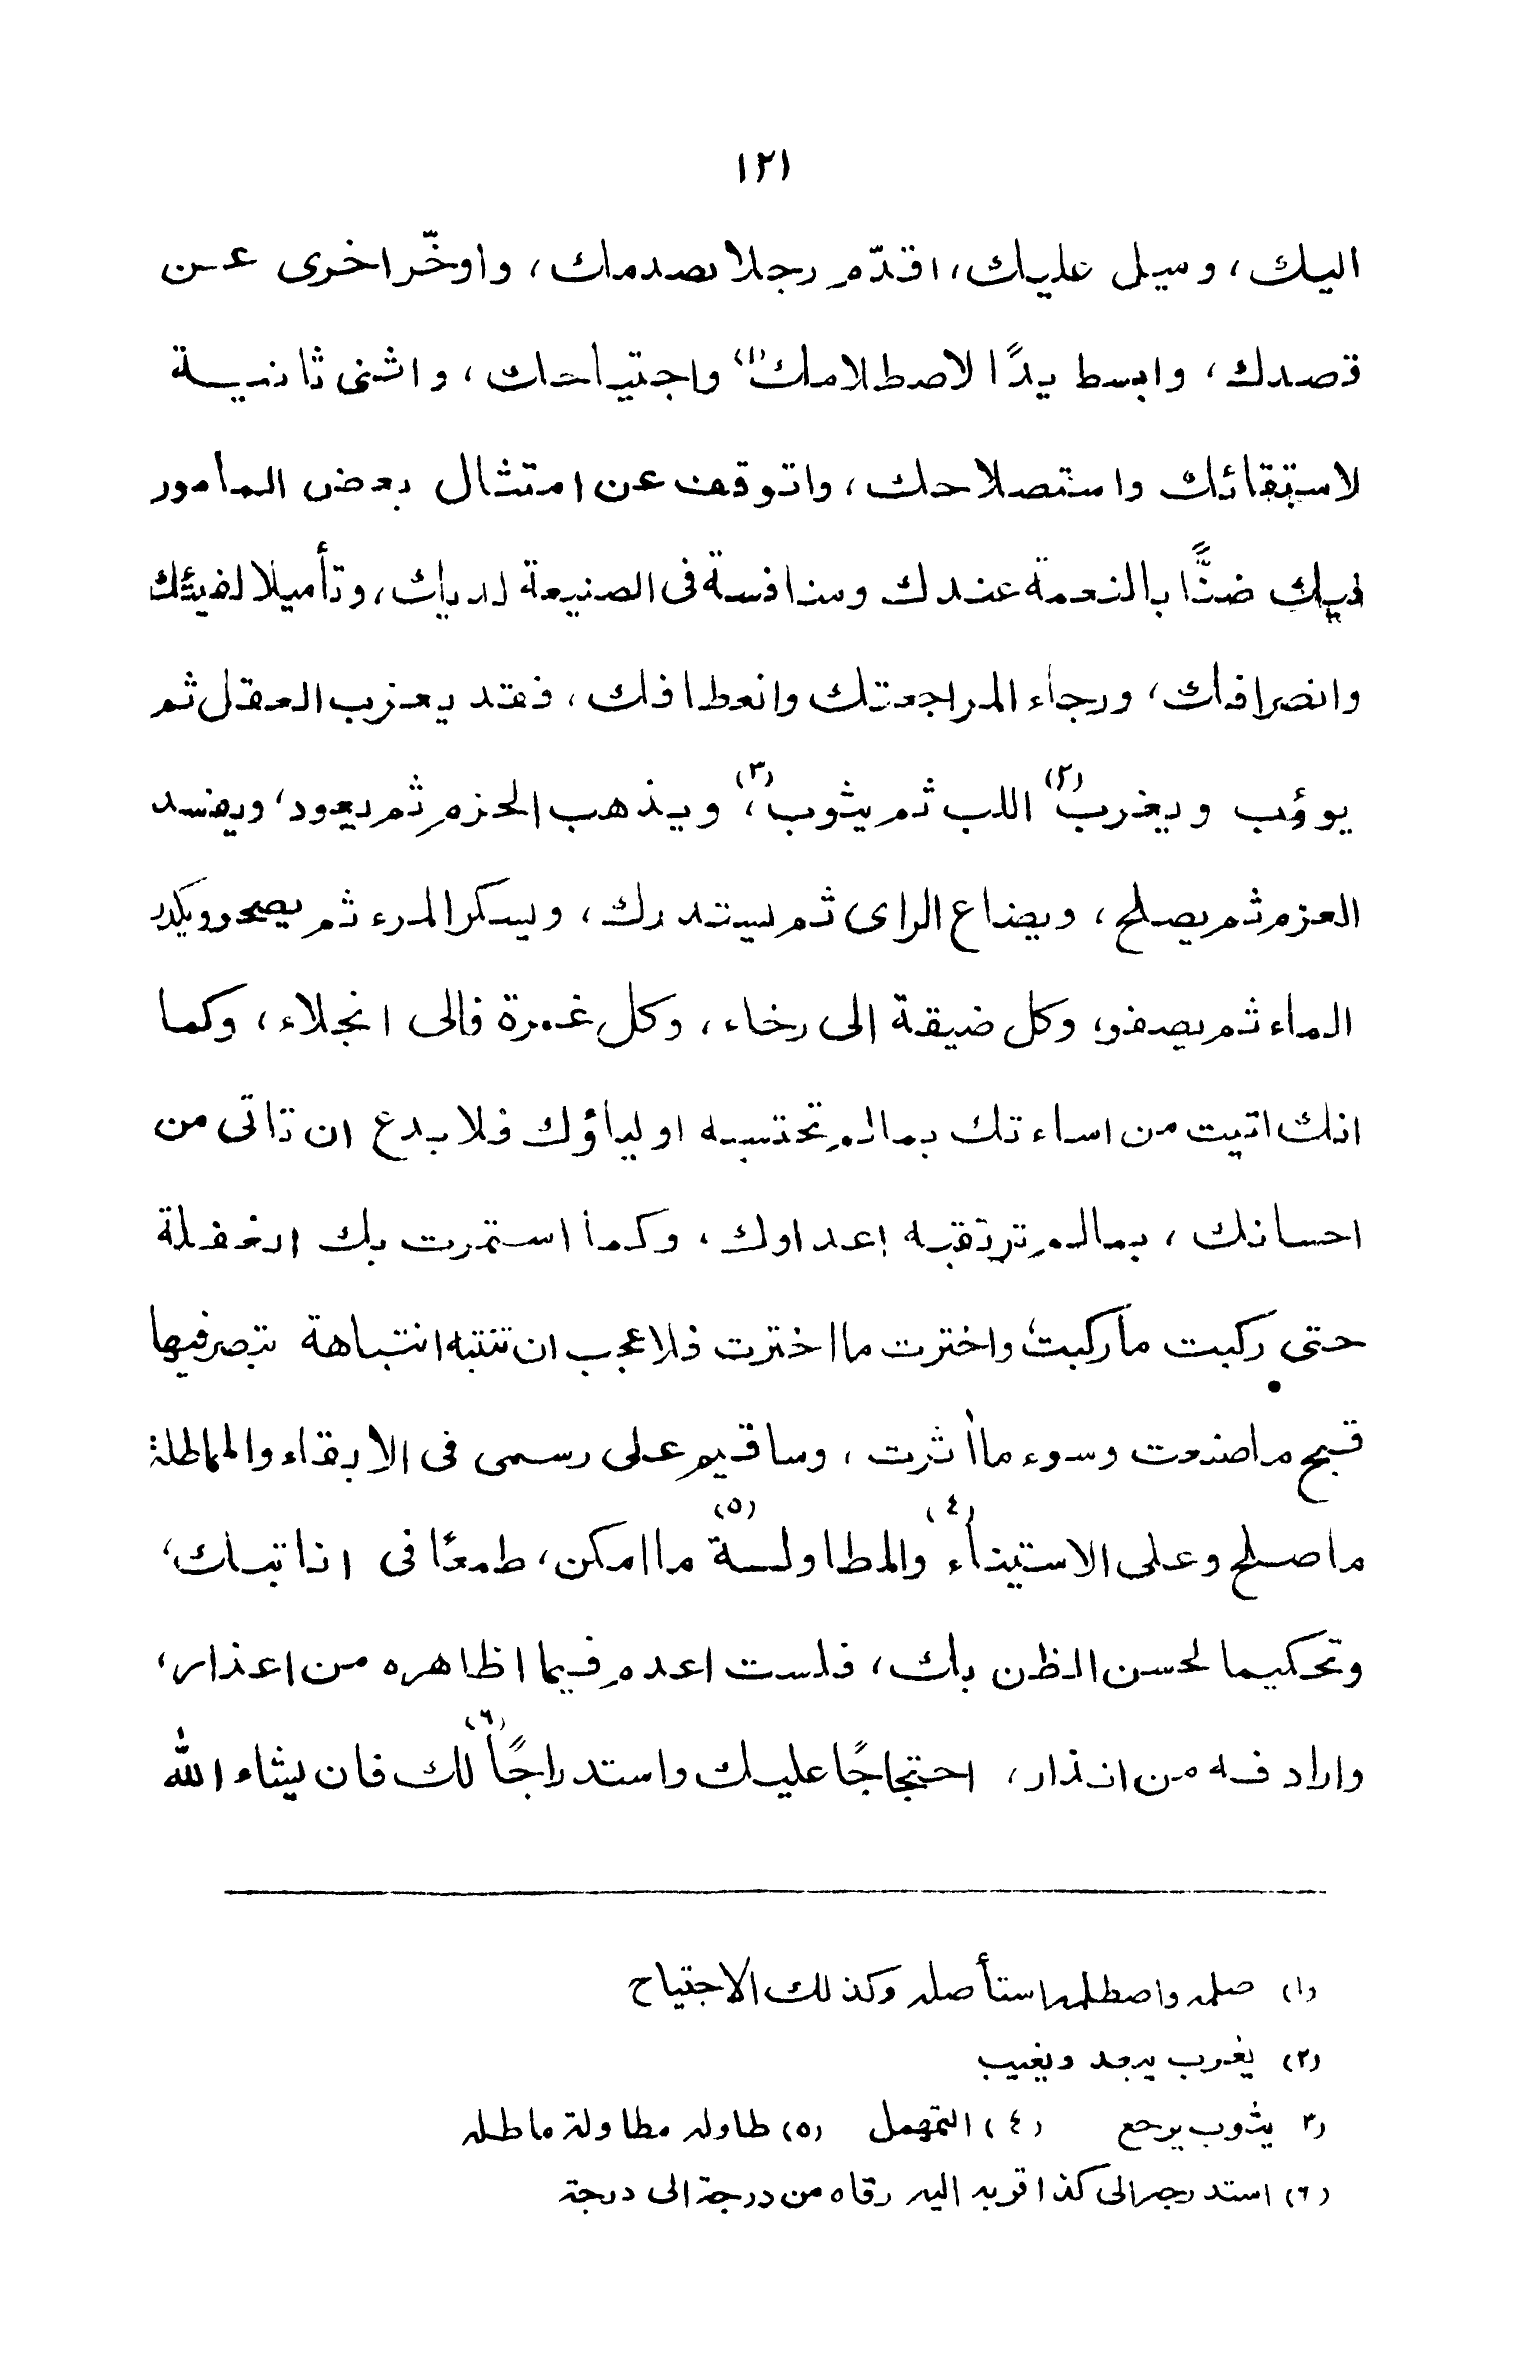 ١٢١
اليك، وسيلى عليك، اقدّم رجلا بصدمك، واوخّر اخرى عن
قصدك، وابسط يدًا لاصطلامك(١) واجتياحك، واثنى ثانية
لاستبقائك واستصلاحك، واتوقف عن امتثال بعض المأمور
فيك ضنًّا بالنعمة عندك ومنافسة فى الصنيعة لديك، وتأميلا لفيئتك
وانصرافك، ورجاء المراجعتك وانعطافك، فقد يعزب العقل ثم
يوؤب ويغرب(٢) اللب ثم يثوب(٣)، ويذهب الحزم ثم يعود، ويفسد
العزم ثم يصلح، ويضاع الراى ثم ليستدرك، ويسكر المرء ثم يصحو ويكدر
الماء ثم يصفو، وكل ضيقة الى رخاء، وكل غمرة فالى انجلاء، وكما
انك اتيت من اساءتك بمالم تحتسبه اولياؤك فلا بدع ان تاتى من
احسانك، بمالم ترتقبه اعداوك، وكما استمرت بك الغفلة
حتى ركبت ما ركبت، واخترت ما اخترت فلا عجب ان تنتبه انتباهة تبصر فيها
قبح ما صنعت وسوء ما أثرت، وساقيم على رسمى فى الابقاء والمماطلة
ما صلح وعلى الاستيناء(٤) والمطاولة(٥) ما امكن، طمعًا فى انابتك،
وتحكيما لحسن الظن بك، فلست اعدم فيما اظاهره من اعذار،
وارادفه من انذار، احتجاجًا عليك واستدراجًا(٦) لك فان يشاء الله
(١) صلمه واصطلمه استأصله وكذلك الاجتياح
(٢) يغرب يبعد ويغيب
(٣ يثوب يرجع (٤) التمهمل (٥) طاوله مطاولة ماطله
(٦) استدرجه الى كذا قربه اليه رقاه من درجة الى درجة